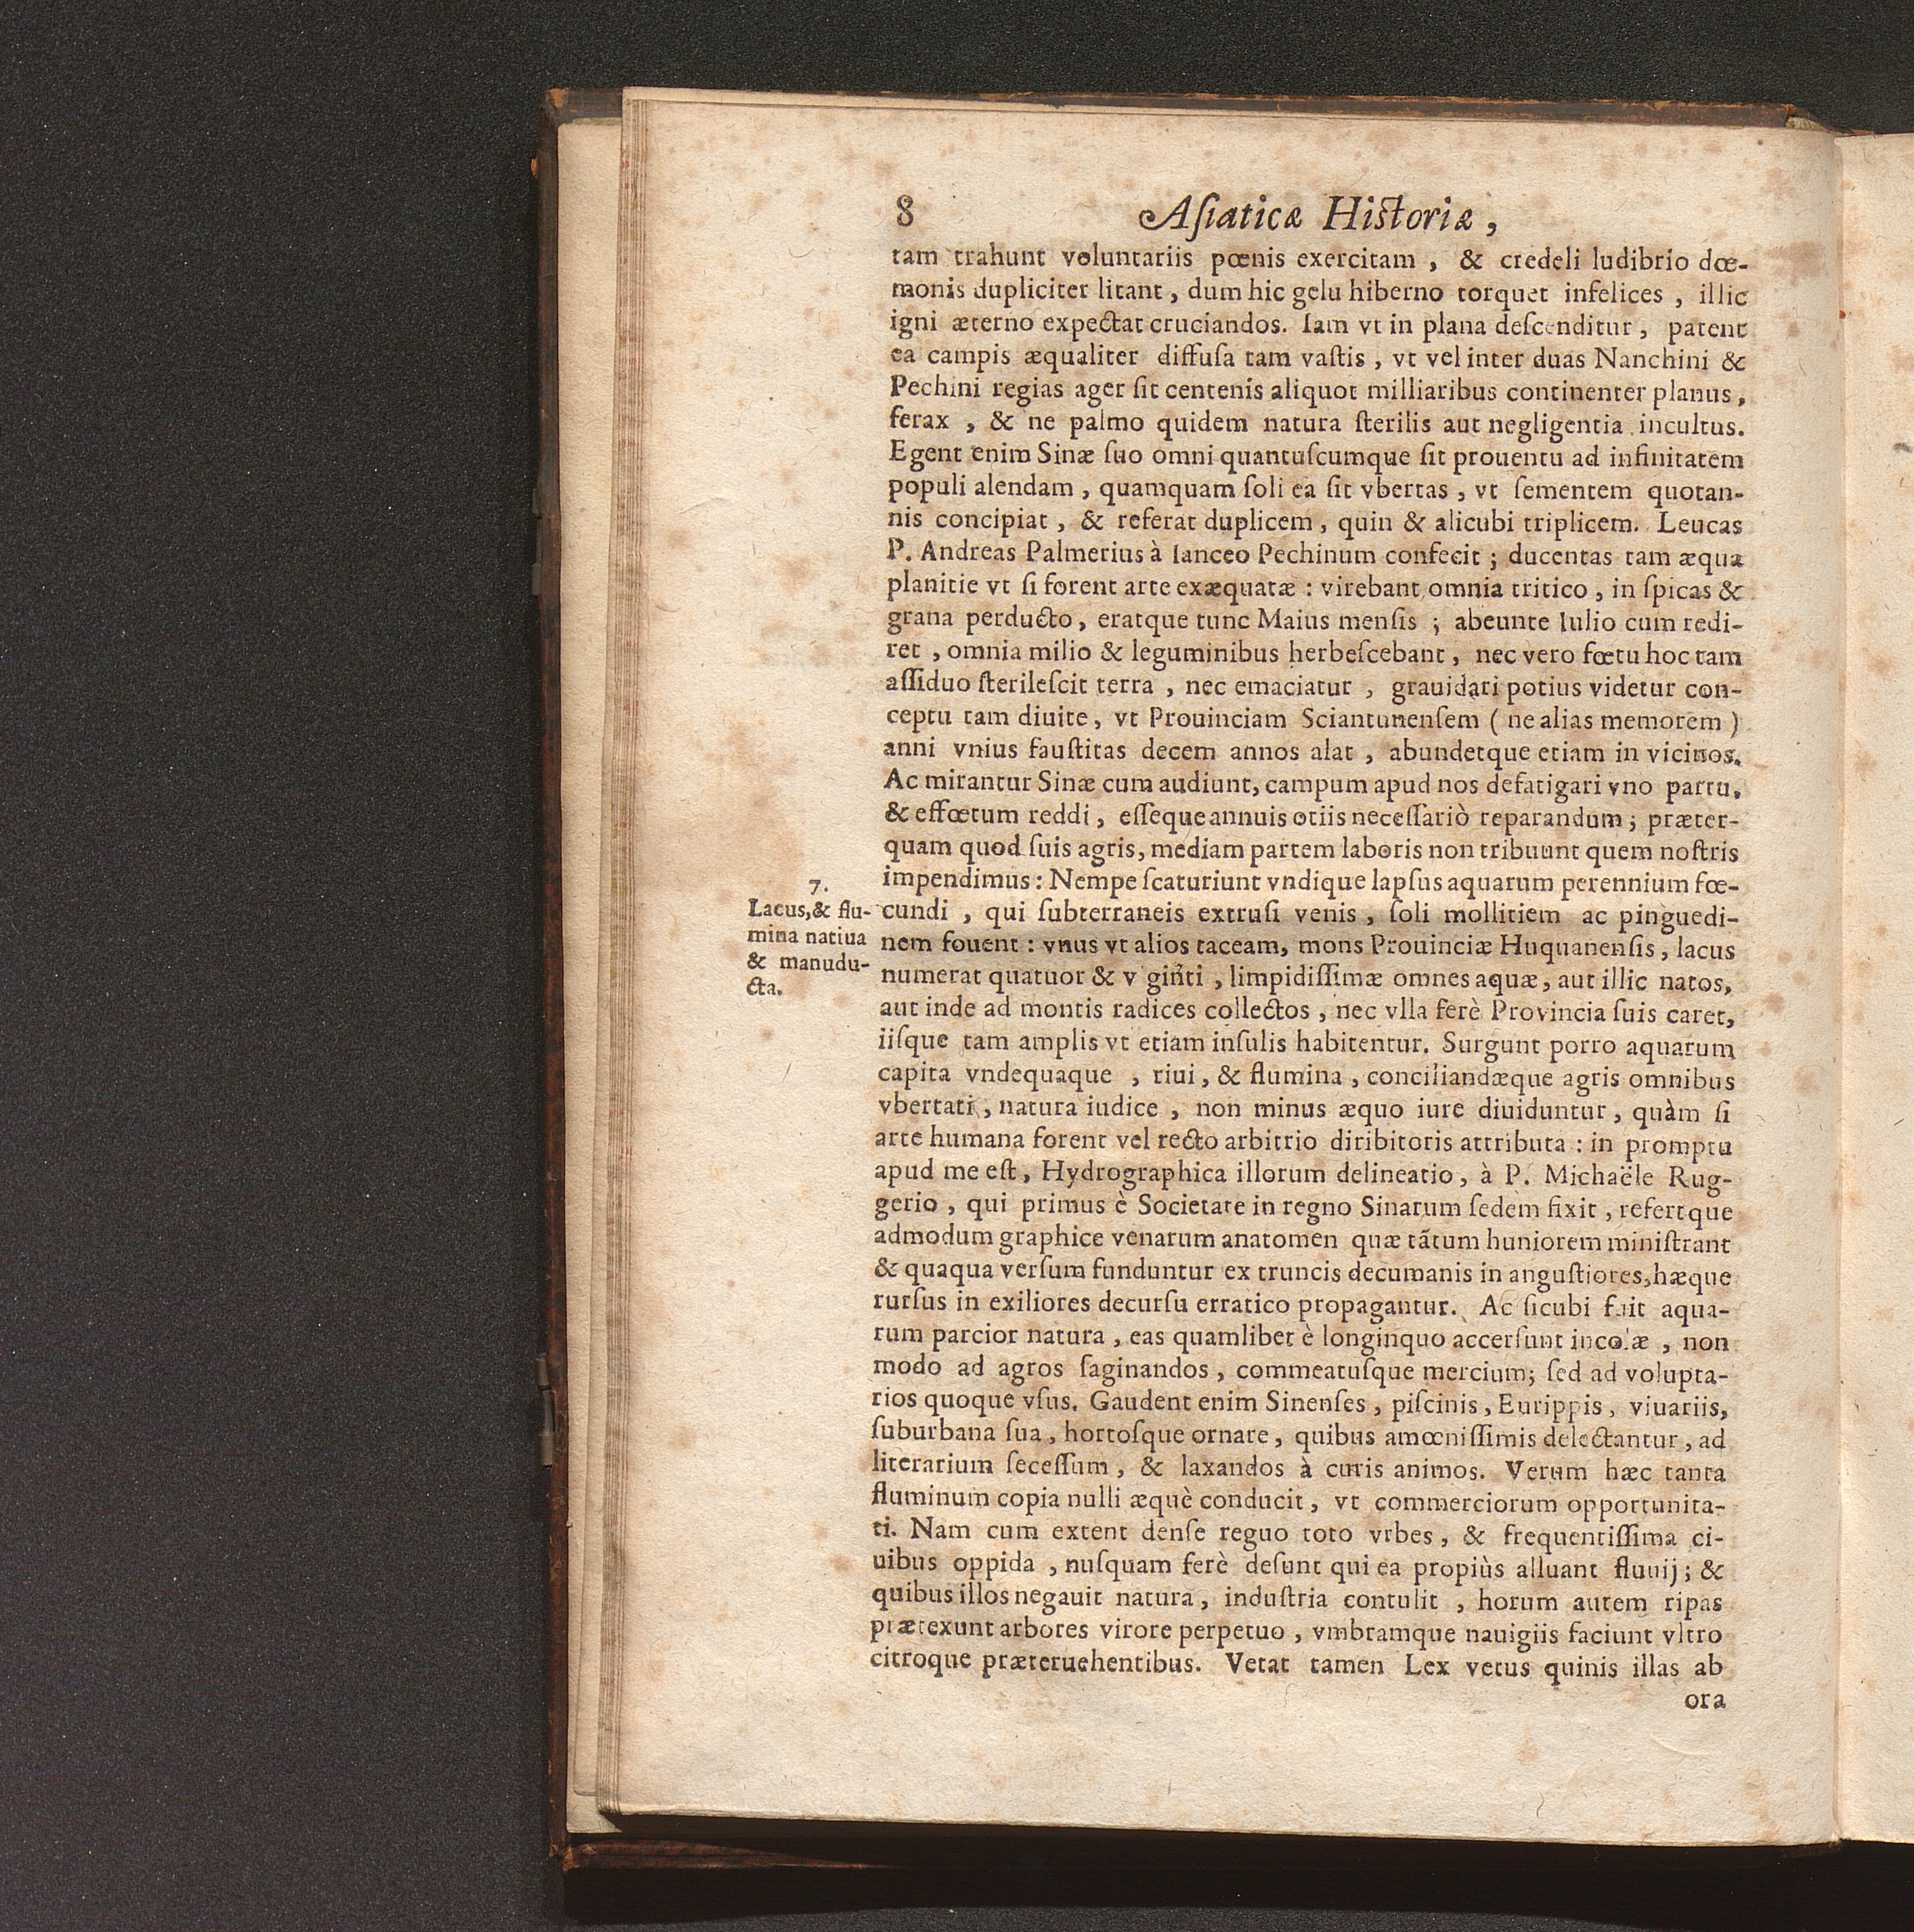 8 Aſiaticæ Hiſtoriæ,
tam trahunt voluntariis pœnis exercitam, & credeli ludibrio dœ-
monis dupliciter litant, dum hic gelu hiberno torquet infelices, illic
igni æterno expectat cruciandos. Iam vt in plana deſcenditur, patent
ea campis æqualiter diffuſa tam vaſtis, vt vel inter duas Nanchini &
Pechini regias ager ſit centenis aliquot milliaribus continenter planus,
ferax, & ne palmo quidem natura ſterilis aut negligentia incultus.
Egent enim Sinæ ſuo omni quantuſcumque ſit prouentu ad infinitatem
populi alendam, quamquam ſoli ea ſit vbertas, vt ſementem quotan-
nis concipiat, & referat duplicem, quin & alicubi triplicem. Leucas
P. Andreas Palmerius à Ianceo Pechinum confecit; ducentas tam æqua
planitie vt ſi forent arte exæquatæ: virebant omnia tritico, in ſpicas &
grana perducto, eratque tunc Maius menſis; abeunte Iulio cum redi-
ret, omnia milio & leguminibus herbeſcebant, nec vero fœtu hoc tam
aſſiduo ſterileſcit terra, nec emaciatur, grauidari potius videtur con-
ceptu tam diuite, vt Prouinciam Sciantunenſem (ne alias memorem)
anni vnius fauſtitas decem annos alat, abundetque etiam in vicinos.
Ac mirantur Sinæ cum audiunt, campum apud nos defatigari vno partu,
& effœtum reddi, eſſeque annuis otiis neceſſariò reparandum; præter-
quam quod ſuis agris, mediam partem laboris non tribuunt quem noſtris
impendimus: Nempe ſcaturiunt vndique lapſus aquarum perennium fœ-
cundi, qui ſubterraneis extruſi venis, ſoli mollitiem ac pinguedi-
nem fouent: vnus vt alios taceam, mons Prouinciæ Huquanenſis, lacus
numerat quatuor & v ginti, limpidiſſimæ omnes aquæ, aut illic natos,
aut inde ad montis radices collectos, nec vlla ferè Provincia ſuis caret,
iiſque tam amplis vt etiam inſulis habitentur. Surgunt porro aquarum
capita vndequaque, riui, & flumina, conciliandæque agris omnibus
vbertati, natura iudice, non minus æquo iure diuiduntur, quàm ſi
arte humana forent vel recto arbitrio diribitoris attributa: in promptu
apud me eſt, Hydrographica illorum delineatio, à P. Michaële Rug-
gerio, qui primus è Societate in regno Sinarum ſedem fixit, refertque
admodum graphice venarum anatomen quæ tãtum huniorem miniſtrant
& quaqua verſum funduntur ex truncis decumanis in anguſtiores, hæque
rurſus in exiliores decurſu erratico propagantur. Ac ſicubi fuit aqua-
rum parcior natura, eas quamlibet è longinquo accerſunt incolæ, non
modo ad agros ſaginandos, commeatuſque mercium; ſed ad volupta-
rios quoque vſus. Gaudent enim Sinenſes, piſcinis, Eurippis, viuariis,
ſuburbana ſua, hortoſque ornare, quibus amœniſſimis delectantur, ad
literarium ſeceſſum, & laxandos à curis animos. Verum hæc tanta
fluminum copia nulli æquè conducit, vt commerciorum opportunita-
ti. Nam cum extent denſe reguo toto vrbes, & frequentiſſima ci-
uibus oppida, nuſquam ferè deſunt qui ea propiùs alluant fluuij; &
quibus illos negauit natura, induſtria contulit, horum autem ripas
prætexunt arbores virore perpetuo, vmbramque nauigiis faciunt vltro
citroque præteruehentibus. Vetat tamen Lex vetus quinis illas ab
ora
7.
Lacus, & flu-
mina natiua
& manudu-
cta.